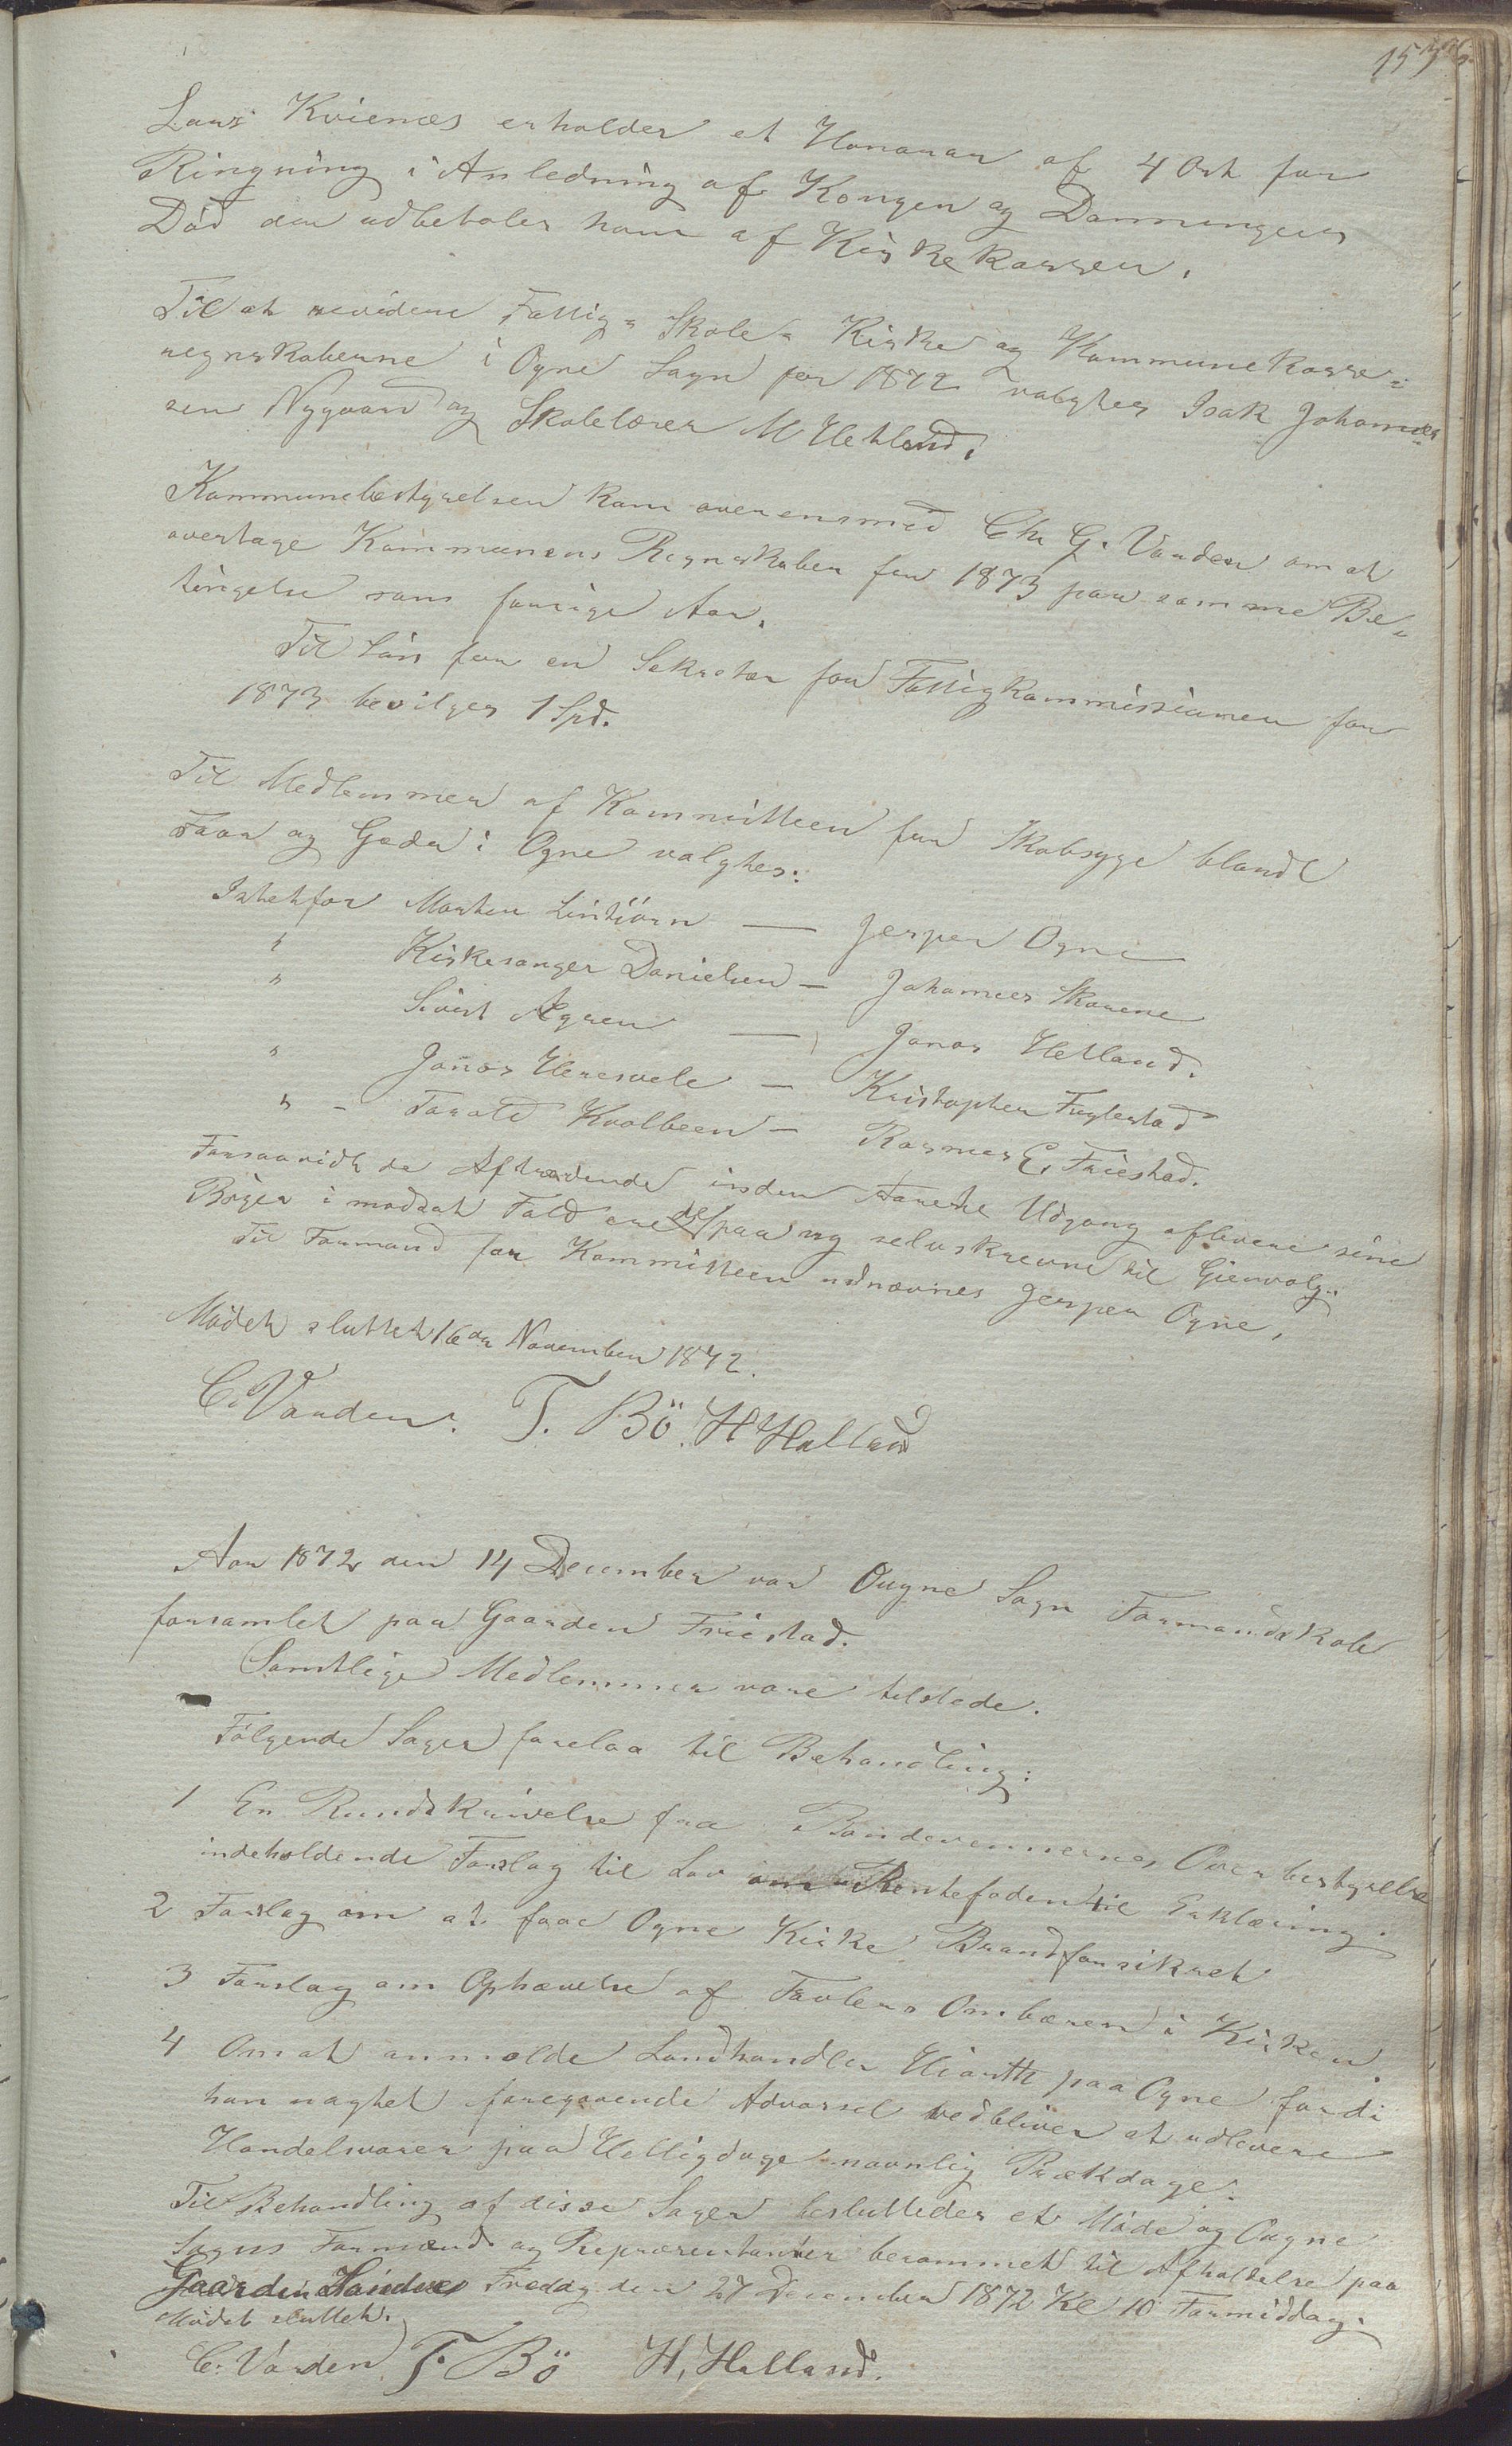 Lars Kvienes erholder et Honorar af 4 Ort for
Ringning i Anledning af Kongen og Dronningens
Död der udbetales ham af Kirkekassen.
Til at revidere Fattig- Skole- Kirke og Kommunekasse-
regnskaberne i Ogne Sogn for 1872 valgtes Isak Johannes-
sen Nygaard og Skolelærer M Hetland.
Kommunebestyrelsen kom overens med Chr G. Varden om at
overtage Kommunens Regnskaber for 1873 paa samme Be-
tingelse som forrige Aar.
Til Lön for en Sekretær for Fattigkommissionen for
1873 bevilges 1 Spd.
Til Medlemmer af Kommitteen for Skabsyge blandt
Faar og Geder i Ogne valgtes:
Istetfor Morten Lintjörn — Jesper Ogne
" Kirkesanger Danielsen — Johannes Skarene
" Sivert Agren — Jonas Hetland.
" Jonas Heresvele — Kristopher Fuglestad
" - Tarald Kvalbeen — Rasmus E. Friestad.
Forsaavidt de Aftrædende inden Aarets Udgang aflevere sine
Böger i modsat Fald ere de paa ny selvskrevne til Gjenvalg.
Til Formand for Kommitteen udnævnes Jesper Ogne.
Mödet sluttet 16de November 1872.
C. Varden. T. Bö. H Halland
Aar 1872 den 14 December var Ougne Sogn Formandskab
forsamlet paa Gaarden Friestad.
Samtlige Medlemmer vare tilstede.
Fölgende Sager forelaa til Behandling:
1 En Rundskrivelse fra Bondevennernes Overbestyrelse
indeholdende Forslag til Lov om Rentefoden til Erklæring.
2 Forslag om at faae Ogne Kirke Brandforsikret
3 Forslag om Ophævelse af Tavlens Ombæren i Kirken.
4 Om at anmelde Landhandler Hiorth paa Ogne fordi
han uagtet foregaaende Advarsel vedbliver at udlevere
Handelsvarer paa Helligdage navnlig Prækdage.
Til Behandling af disse Sager besluttedes et Möde og Ougne
Sogns Formænd og Repræsentanter berammet til Afholdelse paa
Gaarden Handnes Fredag den 27 December 1872 Kl 10 Formiddag.
Mödet sluttet.
C. Varden T. Bö H. Halland.